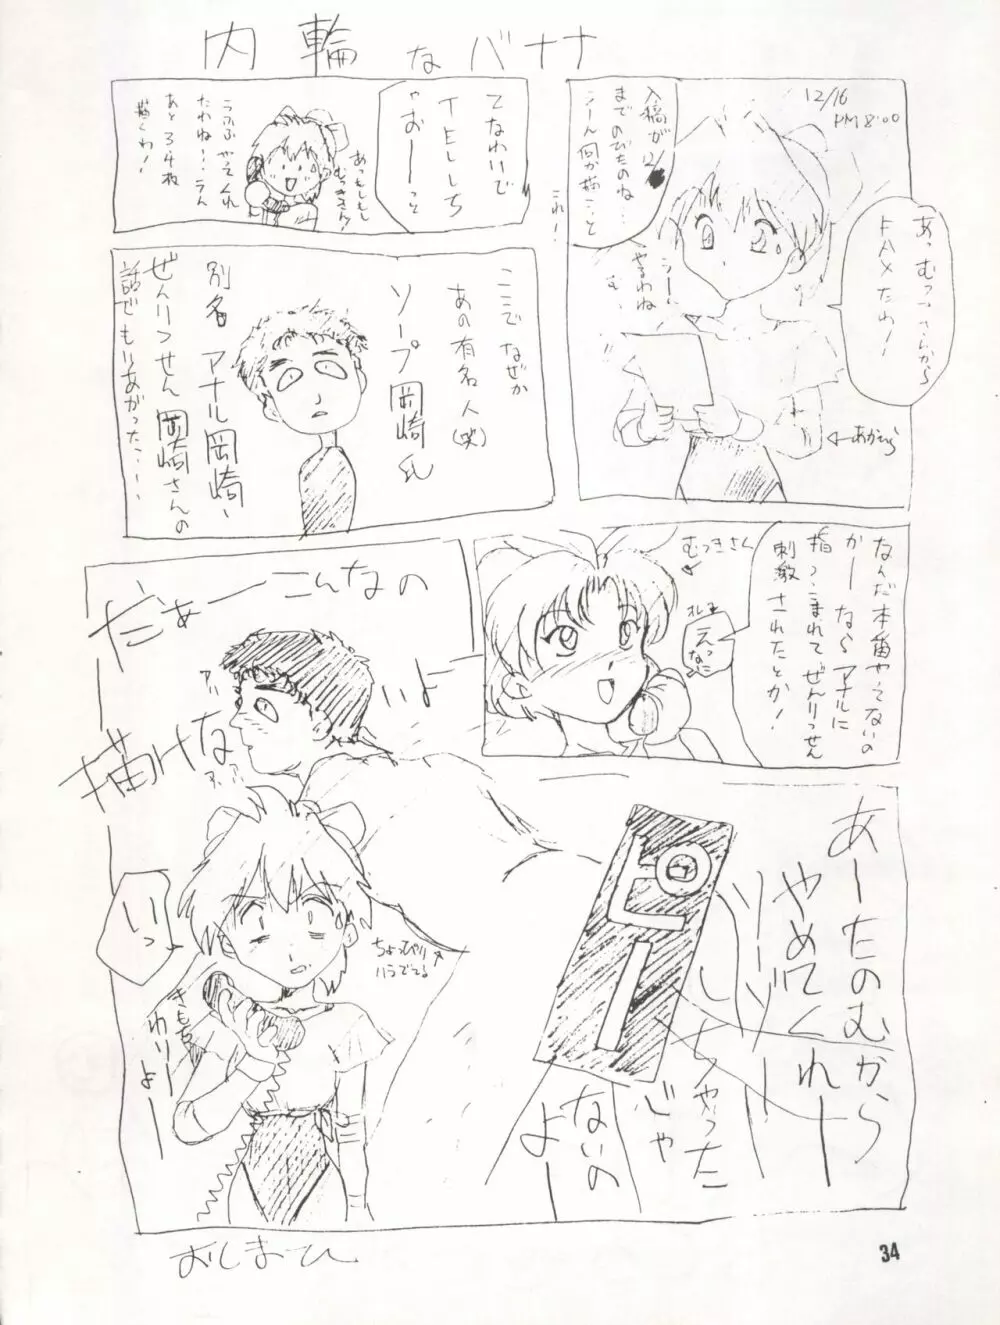 内輪なバナナ
12/16
PM 8:00
あっむつきさんから
FAXだわ!
入稿が12/
までのびたのね…
うーん何か描こっと
うーー
やるわね
む、
これ!
←あかずら
てなわいで
TELしち
ゃおーーっと
あっもしもし
むつきさん?
うふふ やってくれ
たわね!!うん
あと34枚
描くわ!
ここでなぜか
あの有名人(笑)
ソープ岡崎氏
別名アナル岡崎、
ぜんりつせん岡崎さんの
話でもりあがった…!
なんだ本番やってないの
かーーならアナルに
指つっこまれてぜんりつせん
刺激されたとか!
むつきさん
オレは
えっ
なに
だぁーーこんなの
描けないよーー
ピー
あーたのむから
やめてくれーー
ソーゾーー
しちゃった
じゃ
ないの
よーー
ちょっぴり
ハラでてる
いっ
きもち
わりーー
よーー
おしまひ
34